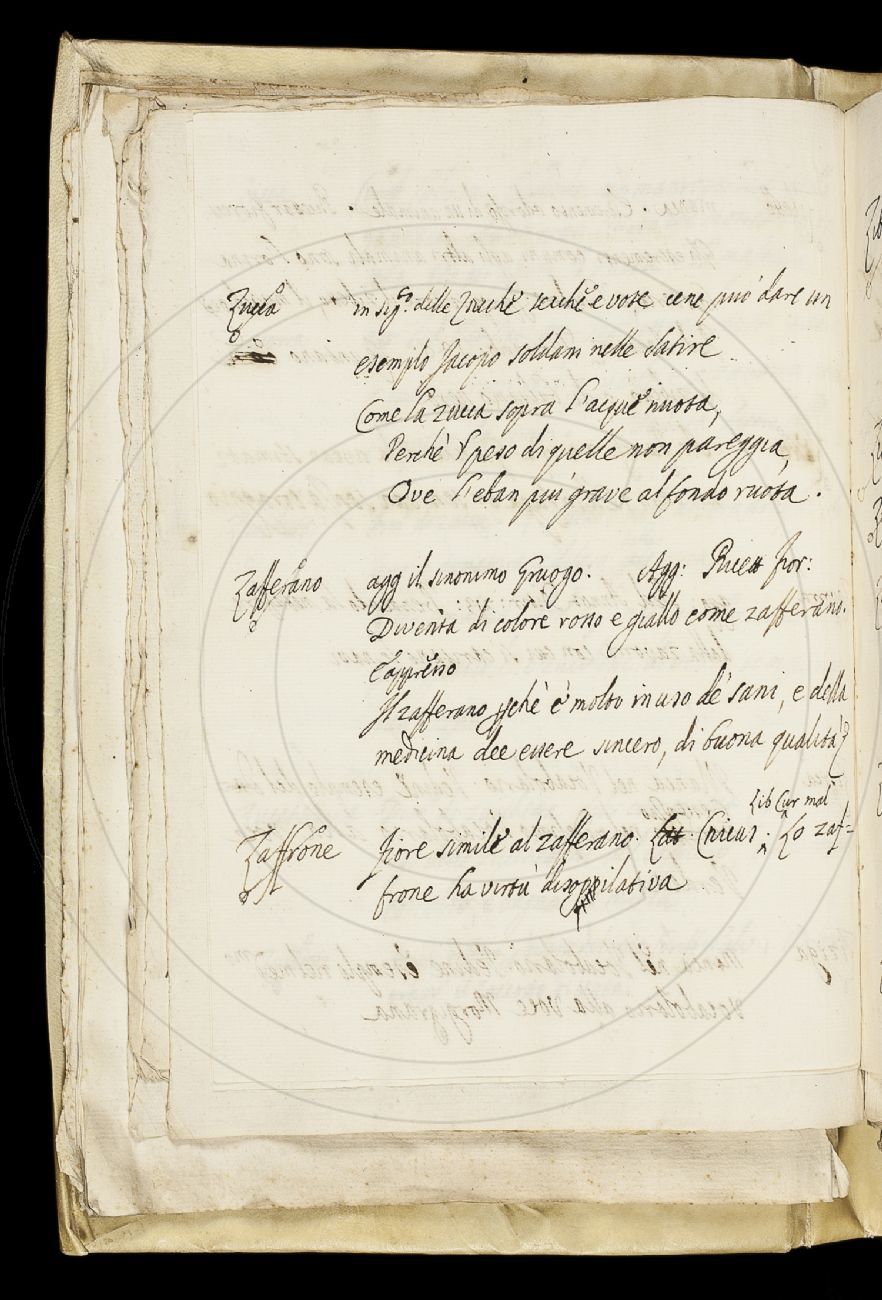 Zucca in sig.º delle Zucche secche e vote cene può dare un
esemplo Jacopo soldani nelle Satire
Come la zucca sopra l'acque nuota,
Perchè 'l peso di quelle non pareggia,
Ove l'eban più grave al fondo ruota.
Zafferano agg il sinonimo Gruogo. Agg: Ricett fior:
Diventa di colore rosso e giallo come zafferano.
E appresso
Il zafferano pchè è molto in uso de' sani, e della
medicina dee essere sincero, di buona qualità
Lib Cur mal
Zaffrone fiore simile al zafferano. Lat Cnicus. Lo zaf=
frone ha virtù disoppilativa